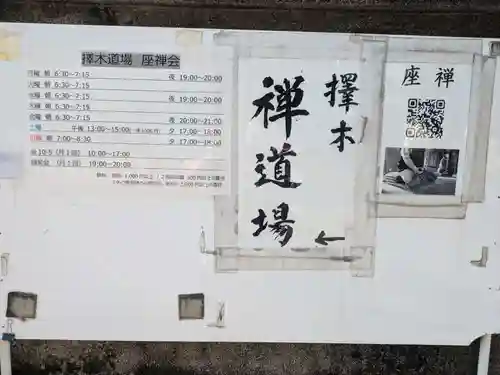 擇木道場 座禅会
月曜 朝 6:30~7:15 夜 19:00~20:00
火曜 朝 6:30~7:15
水曜 朝 6:30~7:15 夜 19:00~20:00
木曜 朝 6:30~7:15
金曜 朝 6:30~7:15 夜 20:00~21:50
土曜 午後 13:00~15:00 夕 17:00~18:00
日曜 朝 7:00~8:30 夕 17:00~18:00
(月1回) 10:00~17:00
(月1回) 19:00~20:00
擇木
禅道場
←
座禅